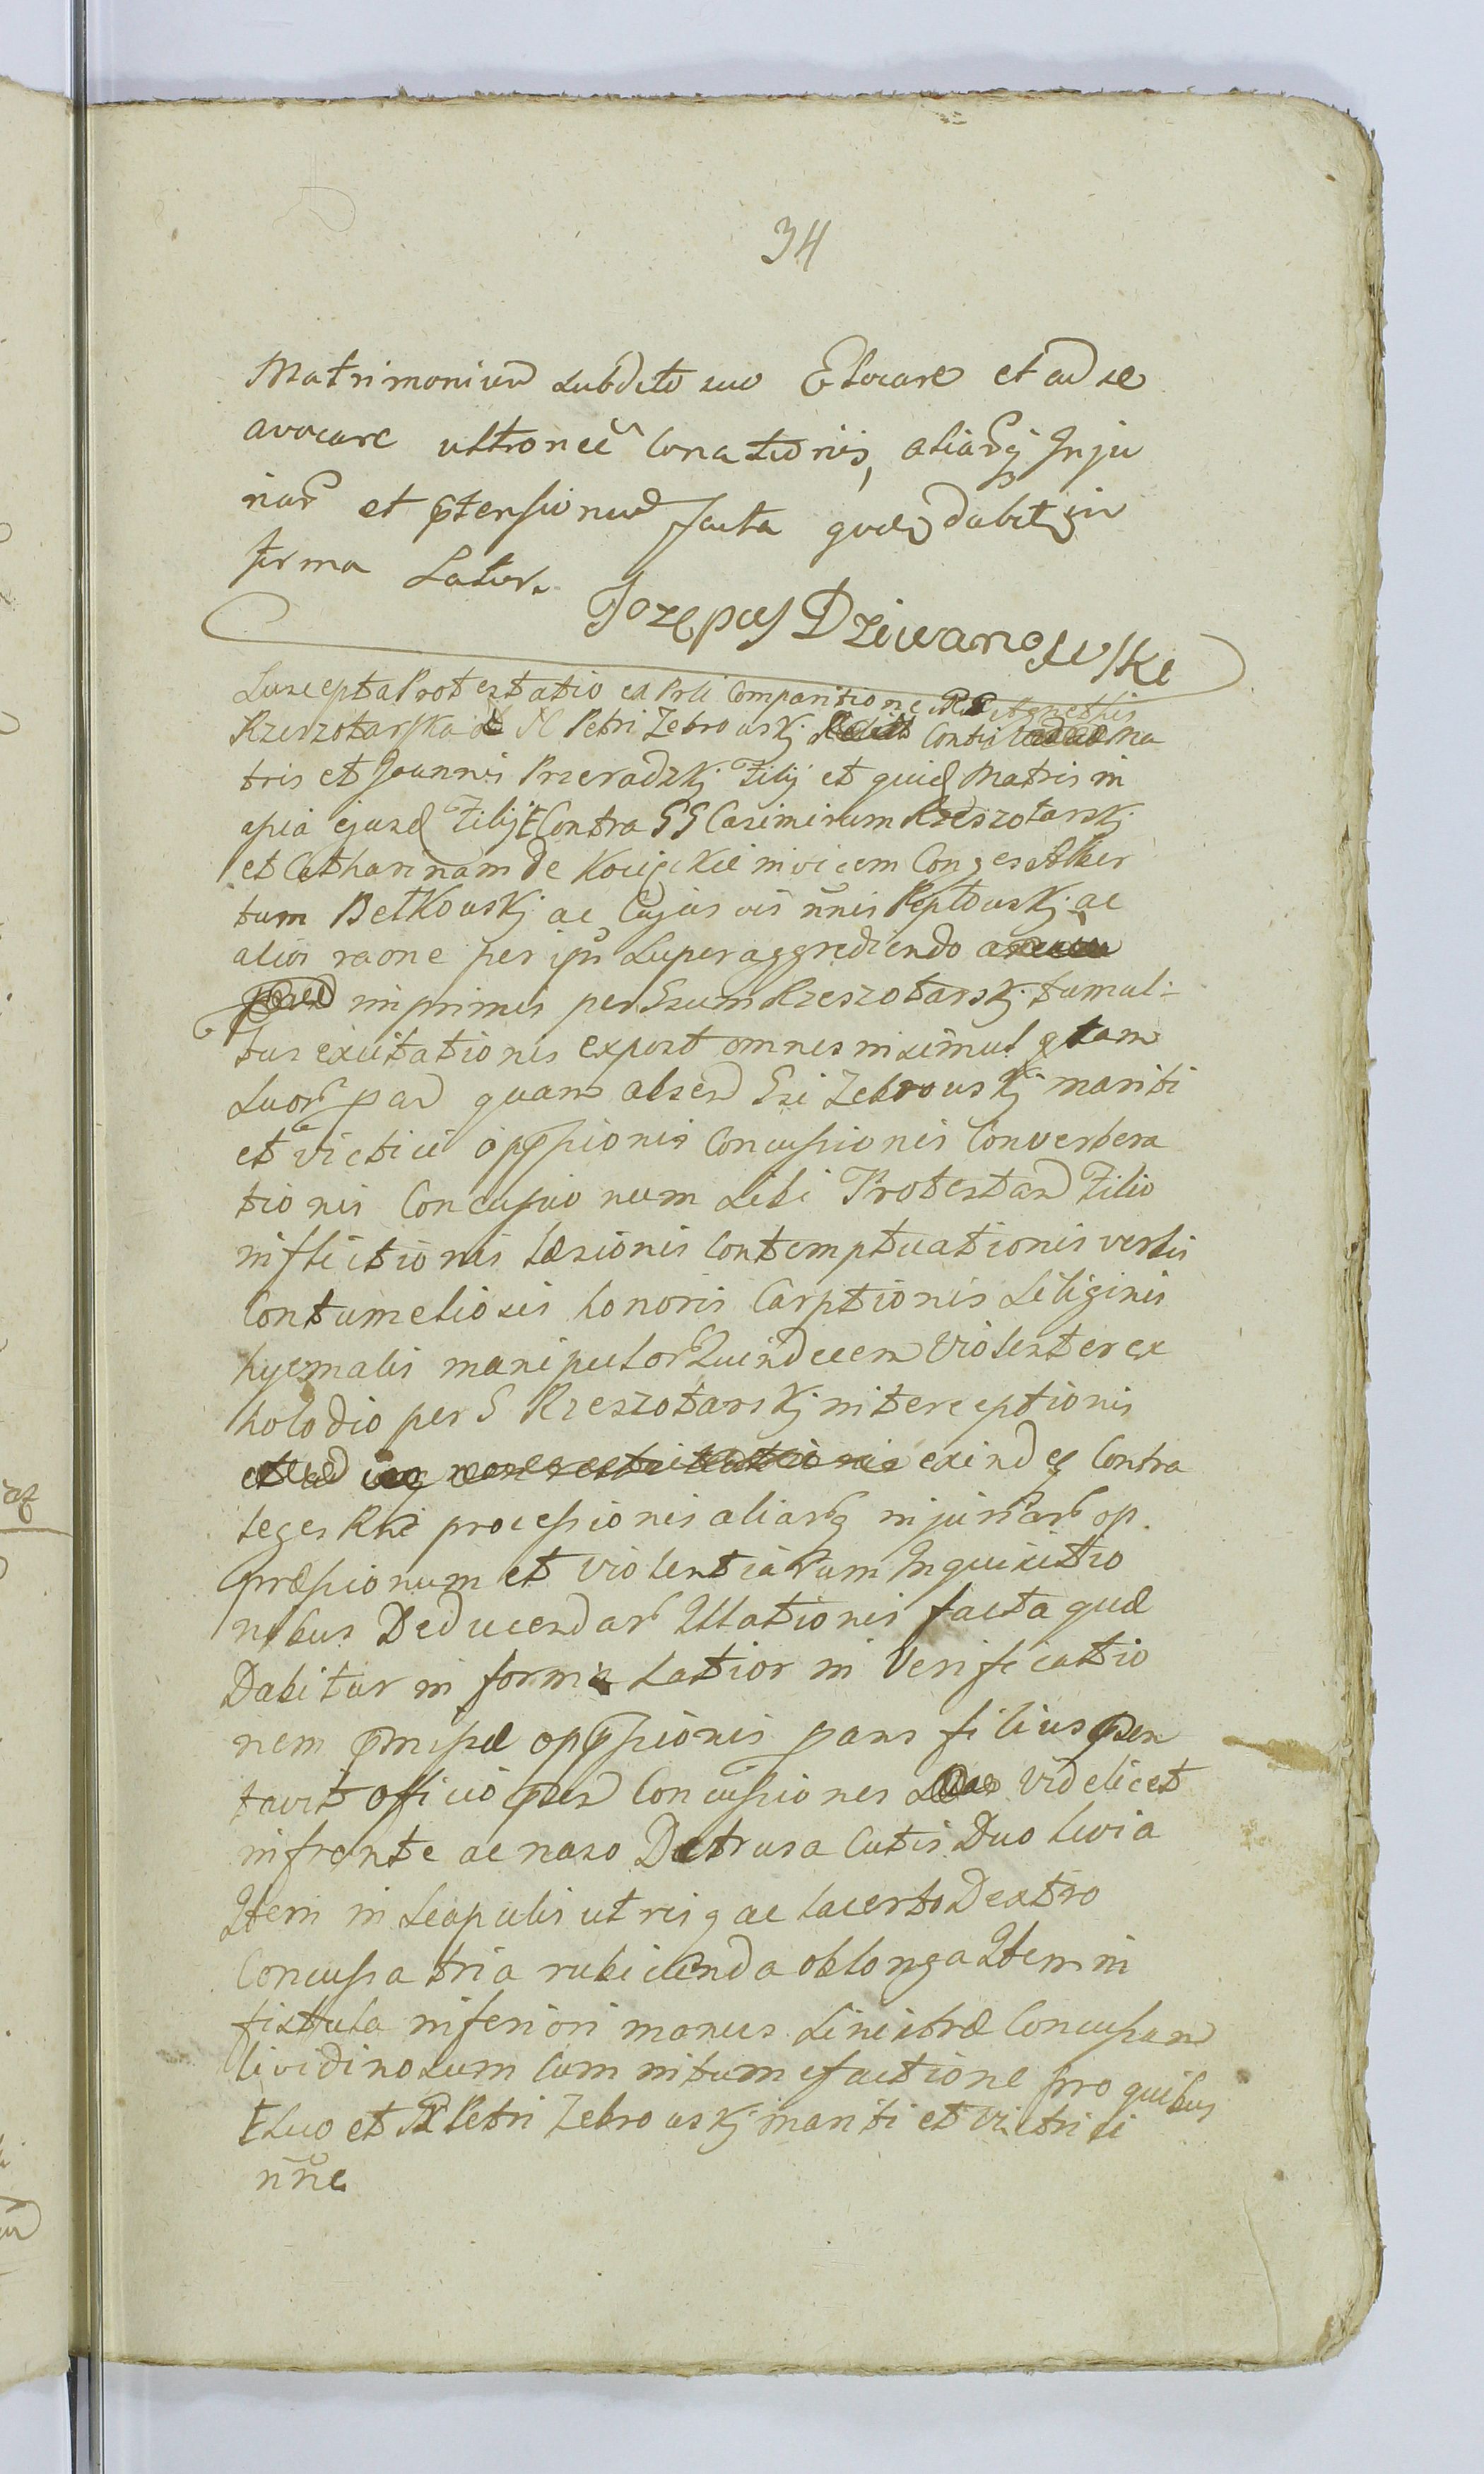 34
Matrimonium subdito suo Elocare et ad se
avocare ultroneè Conationis, aliarq Inju
riar et ptensionum facta quæ dabitur in
forma Latior.
Jozepus Dziwanowski
Suscepta Protestatio ex Prli Comparitione Agnethis
Rzeszotarska Petri Zebrowskj Contis Ma
tris et Joannis Przeradzkj Filij et quid Matris in
apia ejusd Filij Contra GG Casimirum Rzeszotarskj
et Catharinam de invicem Conges Alber
tum Betkowskj ac Cujus vis nnis ac
alios raone per ips superaggrediendo
imprimis per Gsum Rzeszotarskj tumul-
tus excitationis expost omnes insimul qtam
suor par quam absen Gsi Zebrowskj mariti
et victici oppssionis Concussionis Converbera
tionis Concussionum sibi Protestan Filio
inflictionis læsionis Contemptuationis verbis
Contumeliosis honoris Carptionis siliginis
hyemalis manipulor Quindecem violenter ex
holodio per G Rzeszotarskj interceptionis
exind q Contra
leges Rni processionis aliarq injuriar op
præssionum et violentiarum Inquisitio
nibus Deducendar Illationis facta quæ
Dabitur in forma Latior in Verificatio
nem pmissæ oppssionis pars filius psen
tavit officio psen Concussiones videlicet
in fronte ac naso Detrusa Cutis Duo livia
Item in scapulis utrisq ac lacerto Dextro
Concussa tria rubicunda oblonga Item in
fistula inferiori manus sinistræ Concussum
lividinosum Cum intumefactione pro quibus
suo et Petri Zebrowskj mariti et victrici
nne